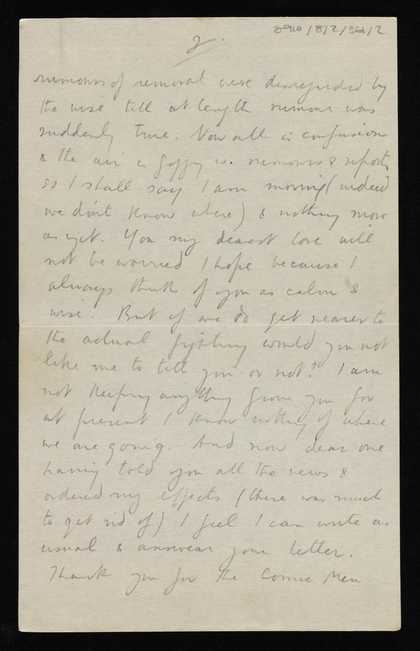 2.
rumours of removal were disregarded by
the wise till at length rumour was
suddenly true. Now all is confusion
& the air is foggy w. rumours & reports
so I shall say I am moving (indeed
we don't know where) & nothing more
as yet. You my dearest love will
not be worried I hope because I
always think of you as calm &
wise. But if we do get nearer to
the actual fighting would you not
like me to tell you or not? I am
not keeping anything from you for
at present I know nothing of where
we are going. And now dear one
having told you all the news &
ordered my effects (there was much
to get rid of) I feel I can write as
usual & answer your letter.
Thank you for the Comic Men